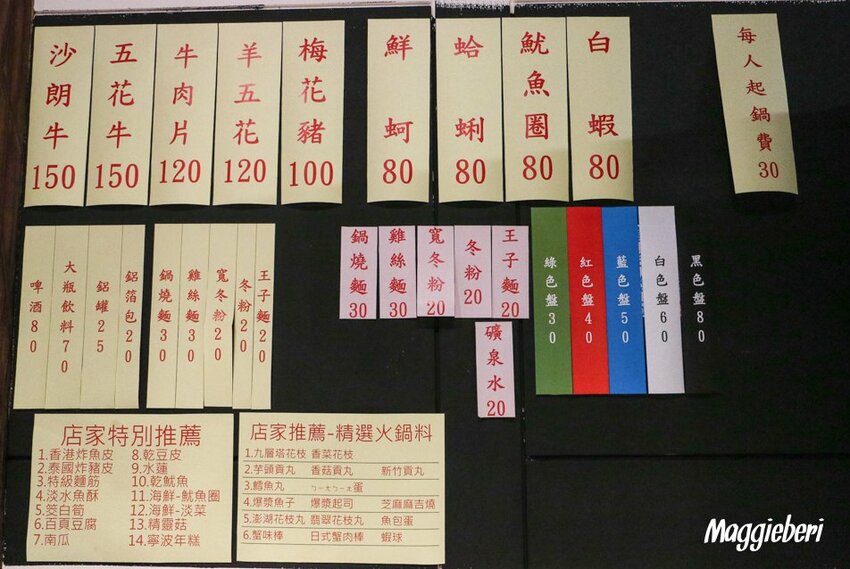 沙朗牛150
五花牛150
牛肉片120
羊五花120
梅花豬100
鮮蚵80
蛤蜊80
魷魚圈80
白蝦80
每人起鍋費30
啤酒80
大瓶飲料70
鋁罐25
鋁箔包20
鍋燒麵30
雞絲麵30
寬冬粉20
冬粉20
王子麵20
鍋燒麵30
雞絲麵30
寬冬粉20
冬粉20
王子麵20
礦泉水20
綠色盤30
紅色盤40
藍色盤50
白色盤60
黑色盤80
店家特別推薦
1.香港炸魚皮 8.乾豆皮
2.泰國炸豬皮 9.水蓮
3.特級麵筋 10.乾魷魚
4.淡水魚酥 11.海鮮-魷魚圈
5.筊白筍 12.海鮮-淡菜
6.百頁豆腐 13.精靈菇
7.南瓜 14.寧波年糕
店家推薦-精選火鍋料
1.九層塔花枝 香菜花枝
2.芋頭貢丸 香菇貢丸 新竹貢丸
3.鱈魚丸 ㄅㄧㄤㄅㄧㄤ蛋
4.爆漿魚子 爆漿起司 芝麻麻吉燒
5.澎湖花枝丸 翡翠花枝丸 魚包蛋
6.蟹味棒 日式蟹肉棒 蝦球
Maggieberi